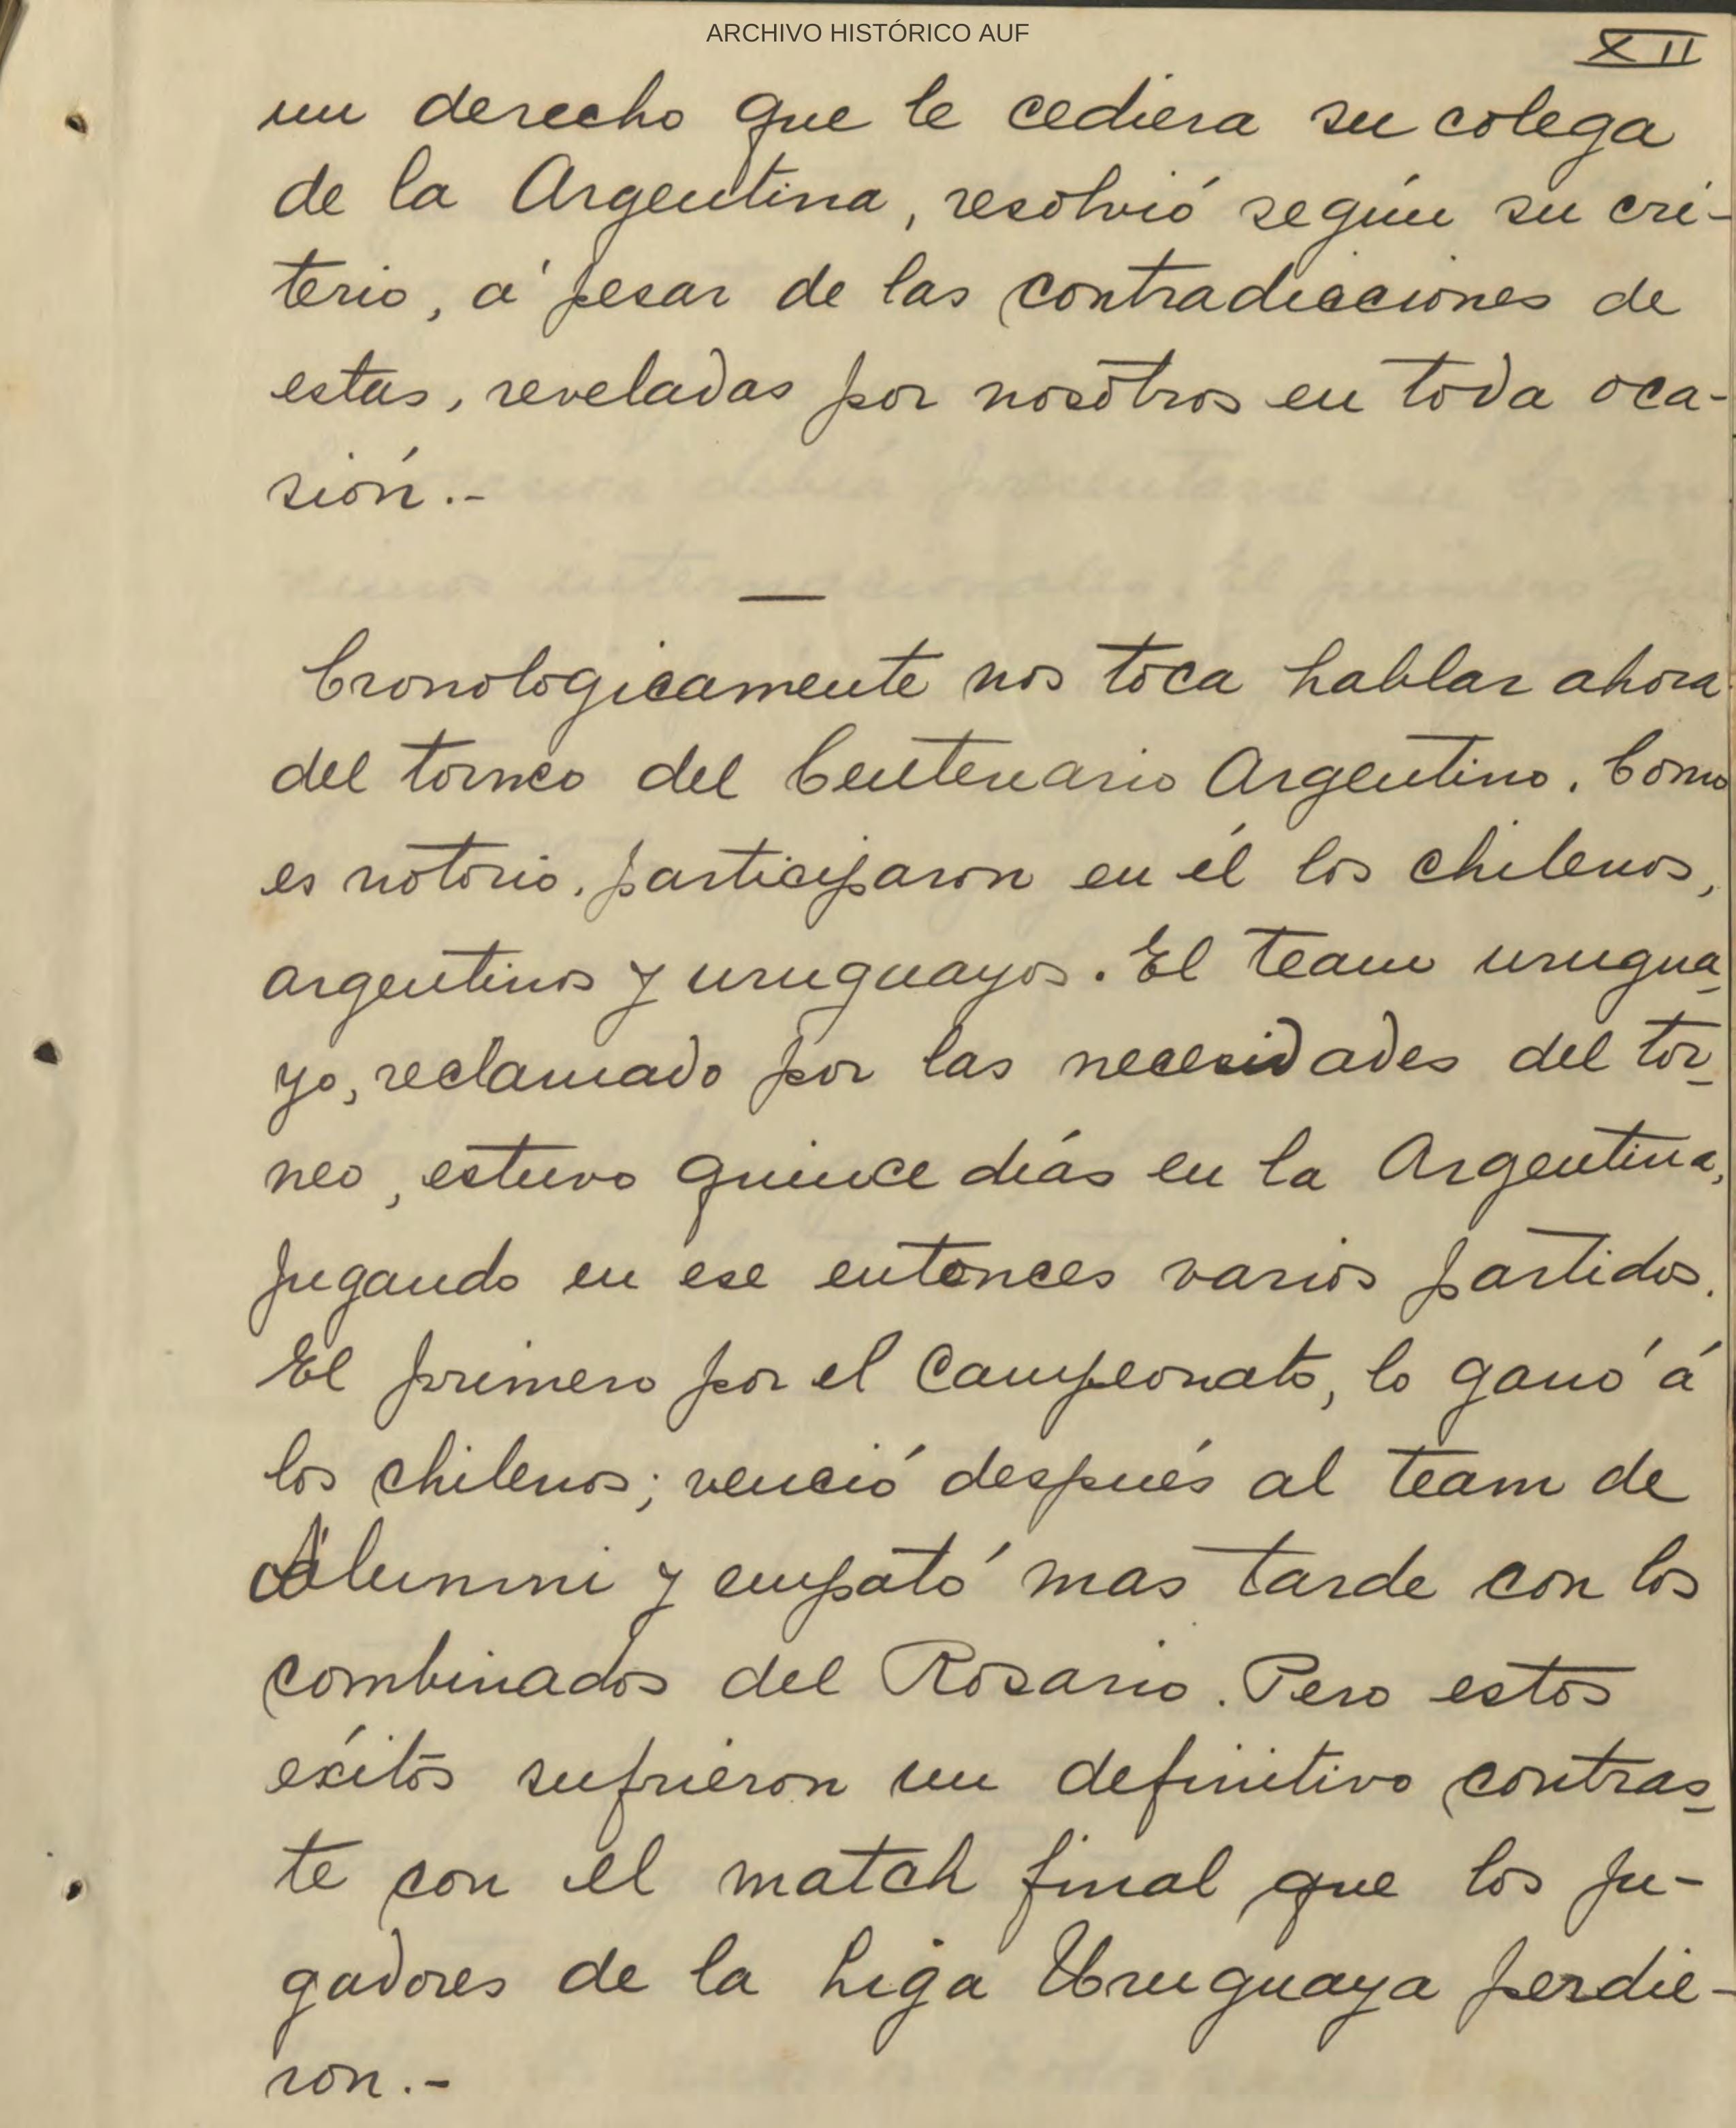 ARCHIVO HISTÓRICO AUF
XII
un derecho que le cediera su colega
de la Argentina, resolvió según su cri-
terio, á pesar de las contradicciones de
estas, reveladas por nosotros en toda oca-
sión.-
Cronologicamente nos toca hablar ahora
del torneo del Centenario Argentino. Como
es notorio, participaron en él los chilenos,
argentinos y uruguayos. El team urugua-
yo, reclamado por las necesidades del tor-
neo, estuvo quince días en la Argentina,
jugando en ese entonces varios partidos.
El primero por el Campeonato, lo ganó á
los chilenos; venció después al team de
Alumni y empató mas tarde con los
combinados del Rosario. Pero estos
éxitos sufrieron un definitivo contras-
te con el match final que los ju-
gadores de la Liga Uruguaya perdie-
ron.-